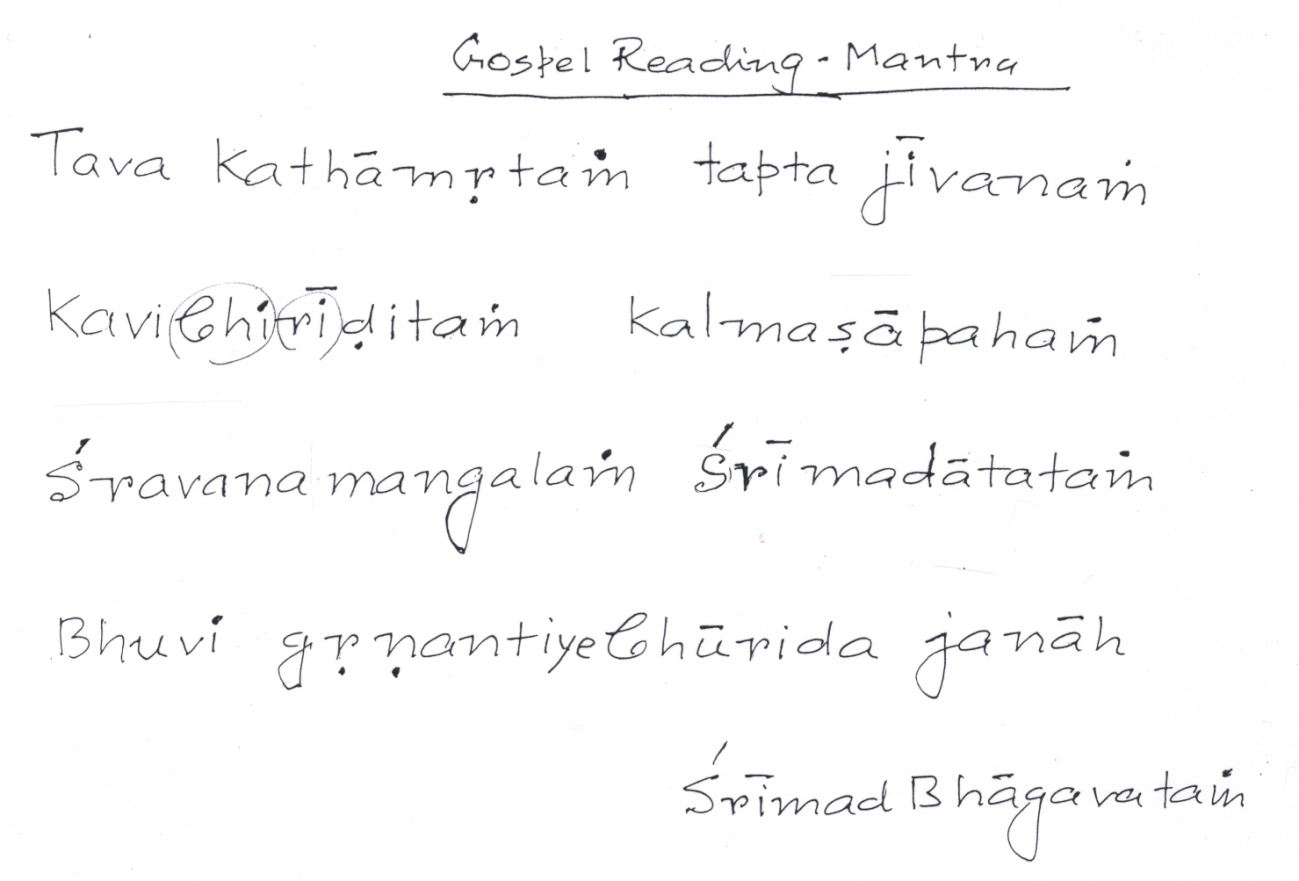 Gospel Reading - Mantra
Tava Kathāmṛtaṁ tapta jīvanaṁ
Kavibhirīḍitaṁ Kalmaṣāpahaṁ
Śravana mangalaṁ Śrīmadātataṁ
Bhuvi gṛṇantiyebhūrida janāh
Śrīmad Bhāgavataṁ